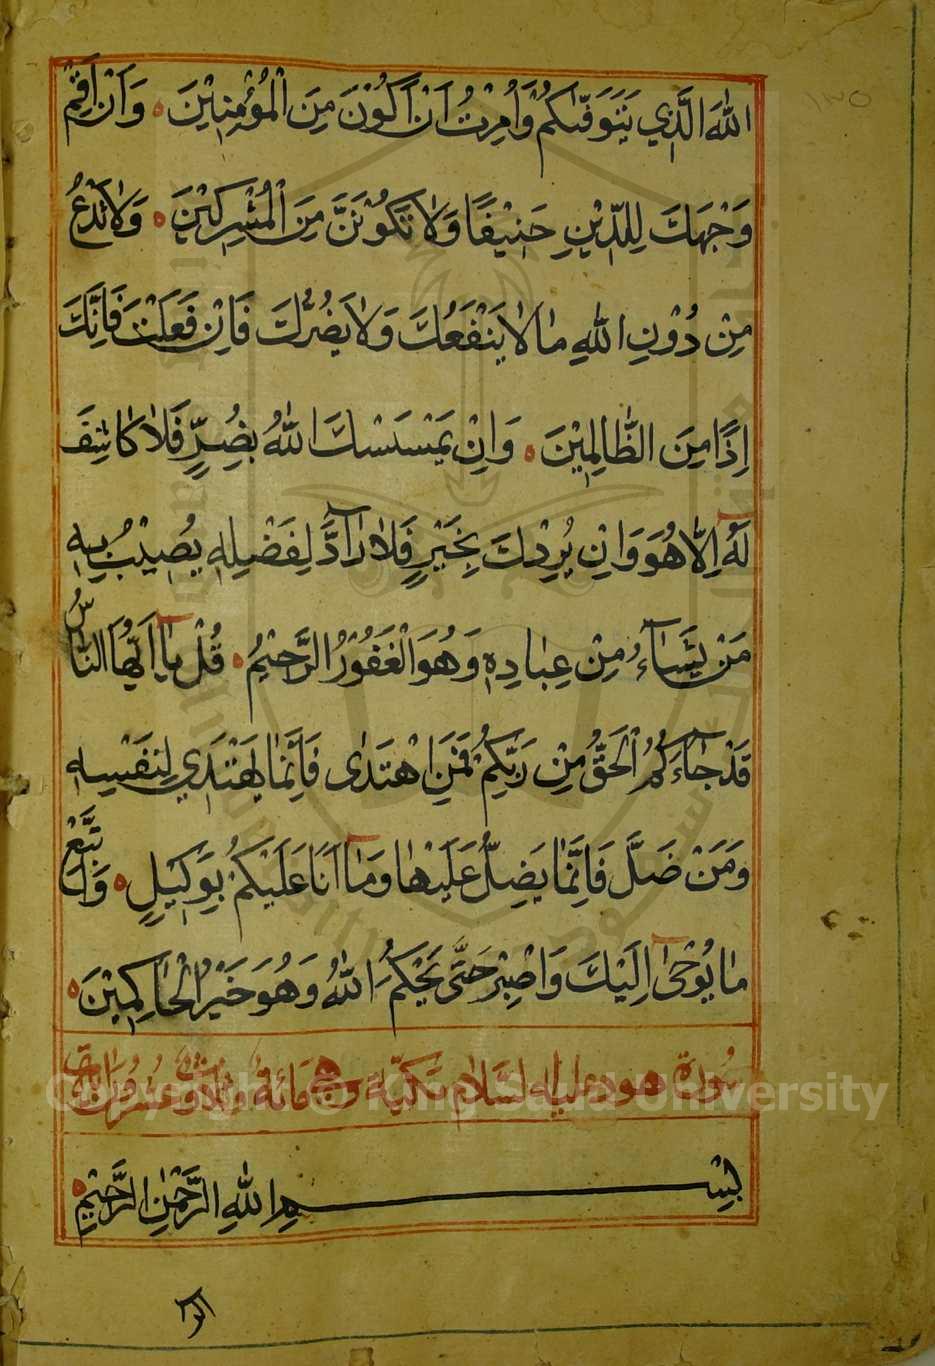 ١٣٥
اللهَ الَّذِي يَتَوَفّٰىكُمْ وَاُمِرْتُ اَنْ اَكُوْنَ مِنَ الْمُؤْمِنِيْنَ وَاَنْ اَقِمْ
وَجْهَكَ لِلدِّيْنِ حَنِيْفًا وَلَا تَكُوْنَنَّ مِنَ الْمُشْرِكِيْنَ وَلَا تَدْعُ
مِنْ دُوْنِ اللهِ مَا لَا يَنْفَعُكَ وَلَا يَضُرُّكَ فَاِنْ فَعَلْتَ فَاِنَّكَ
اِذًا مِنَ الظَّالِمِيْنَ وَاِنْ يَمْسَسْكَ اللهُ بِضُرٍّ فَلَا كَاشِفَ
لَهٗ اِلَّا هُوَ وَاِنْ يُرِدْكَ بِخَيْرٍ فَلَا رَآدَّ لِفَضْلِهٖ يُصِيْبُ بِهٖ
مَنْ يَشَآءُ مِنْ عِبَادِهٖ وَهُوَ الْغَفُوْرُ الرَّحِيْمُ قُلْ يَآ اَيُّهَا النَّاسُ
قَدْ جَآءَكُمُ الْحَقُّ مِنْ رَبِّكُمْ فَمَنِ اهْتَدٰى فَاِنَّمَا يَهْتَدِي لِنَفْسِهٖ
وَمَنْ ضَلَّ فَاِنَّمَا يَضِلُّ عَلَيْهَا وَمَآ اَنَا عَلَيْكُمْ بِوَكِيْلٍ وَاتَّبِعْ
مَا يُوْحٰى اِلَيْكَ وَاصْبِرْ حَتَّى يَحْكُمَ اللهُ وَهُوَ خَيْرُ الْحَاكِمِيْنَ
سُورَة هود عليه السلام مكية وهي مائة وثلاث وعشرون ايات
بِسْمِ اللهِ الرَّحْمٰنِ الرَّحِيْمِ
الٓرٰ
Copyright © King Saud University